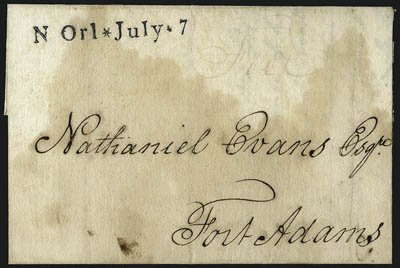 N Orl*July*7
Nathaniel Evans Esqre
Fort Adams